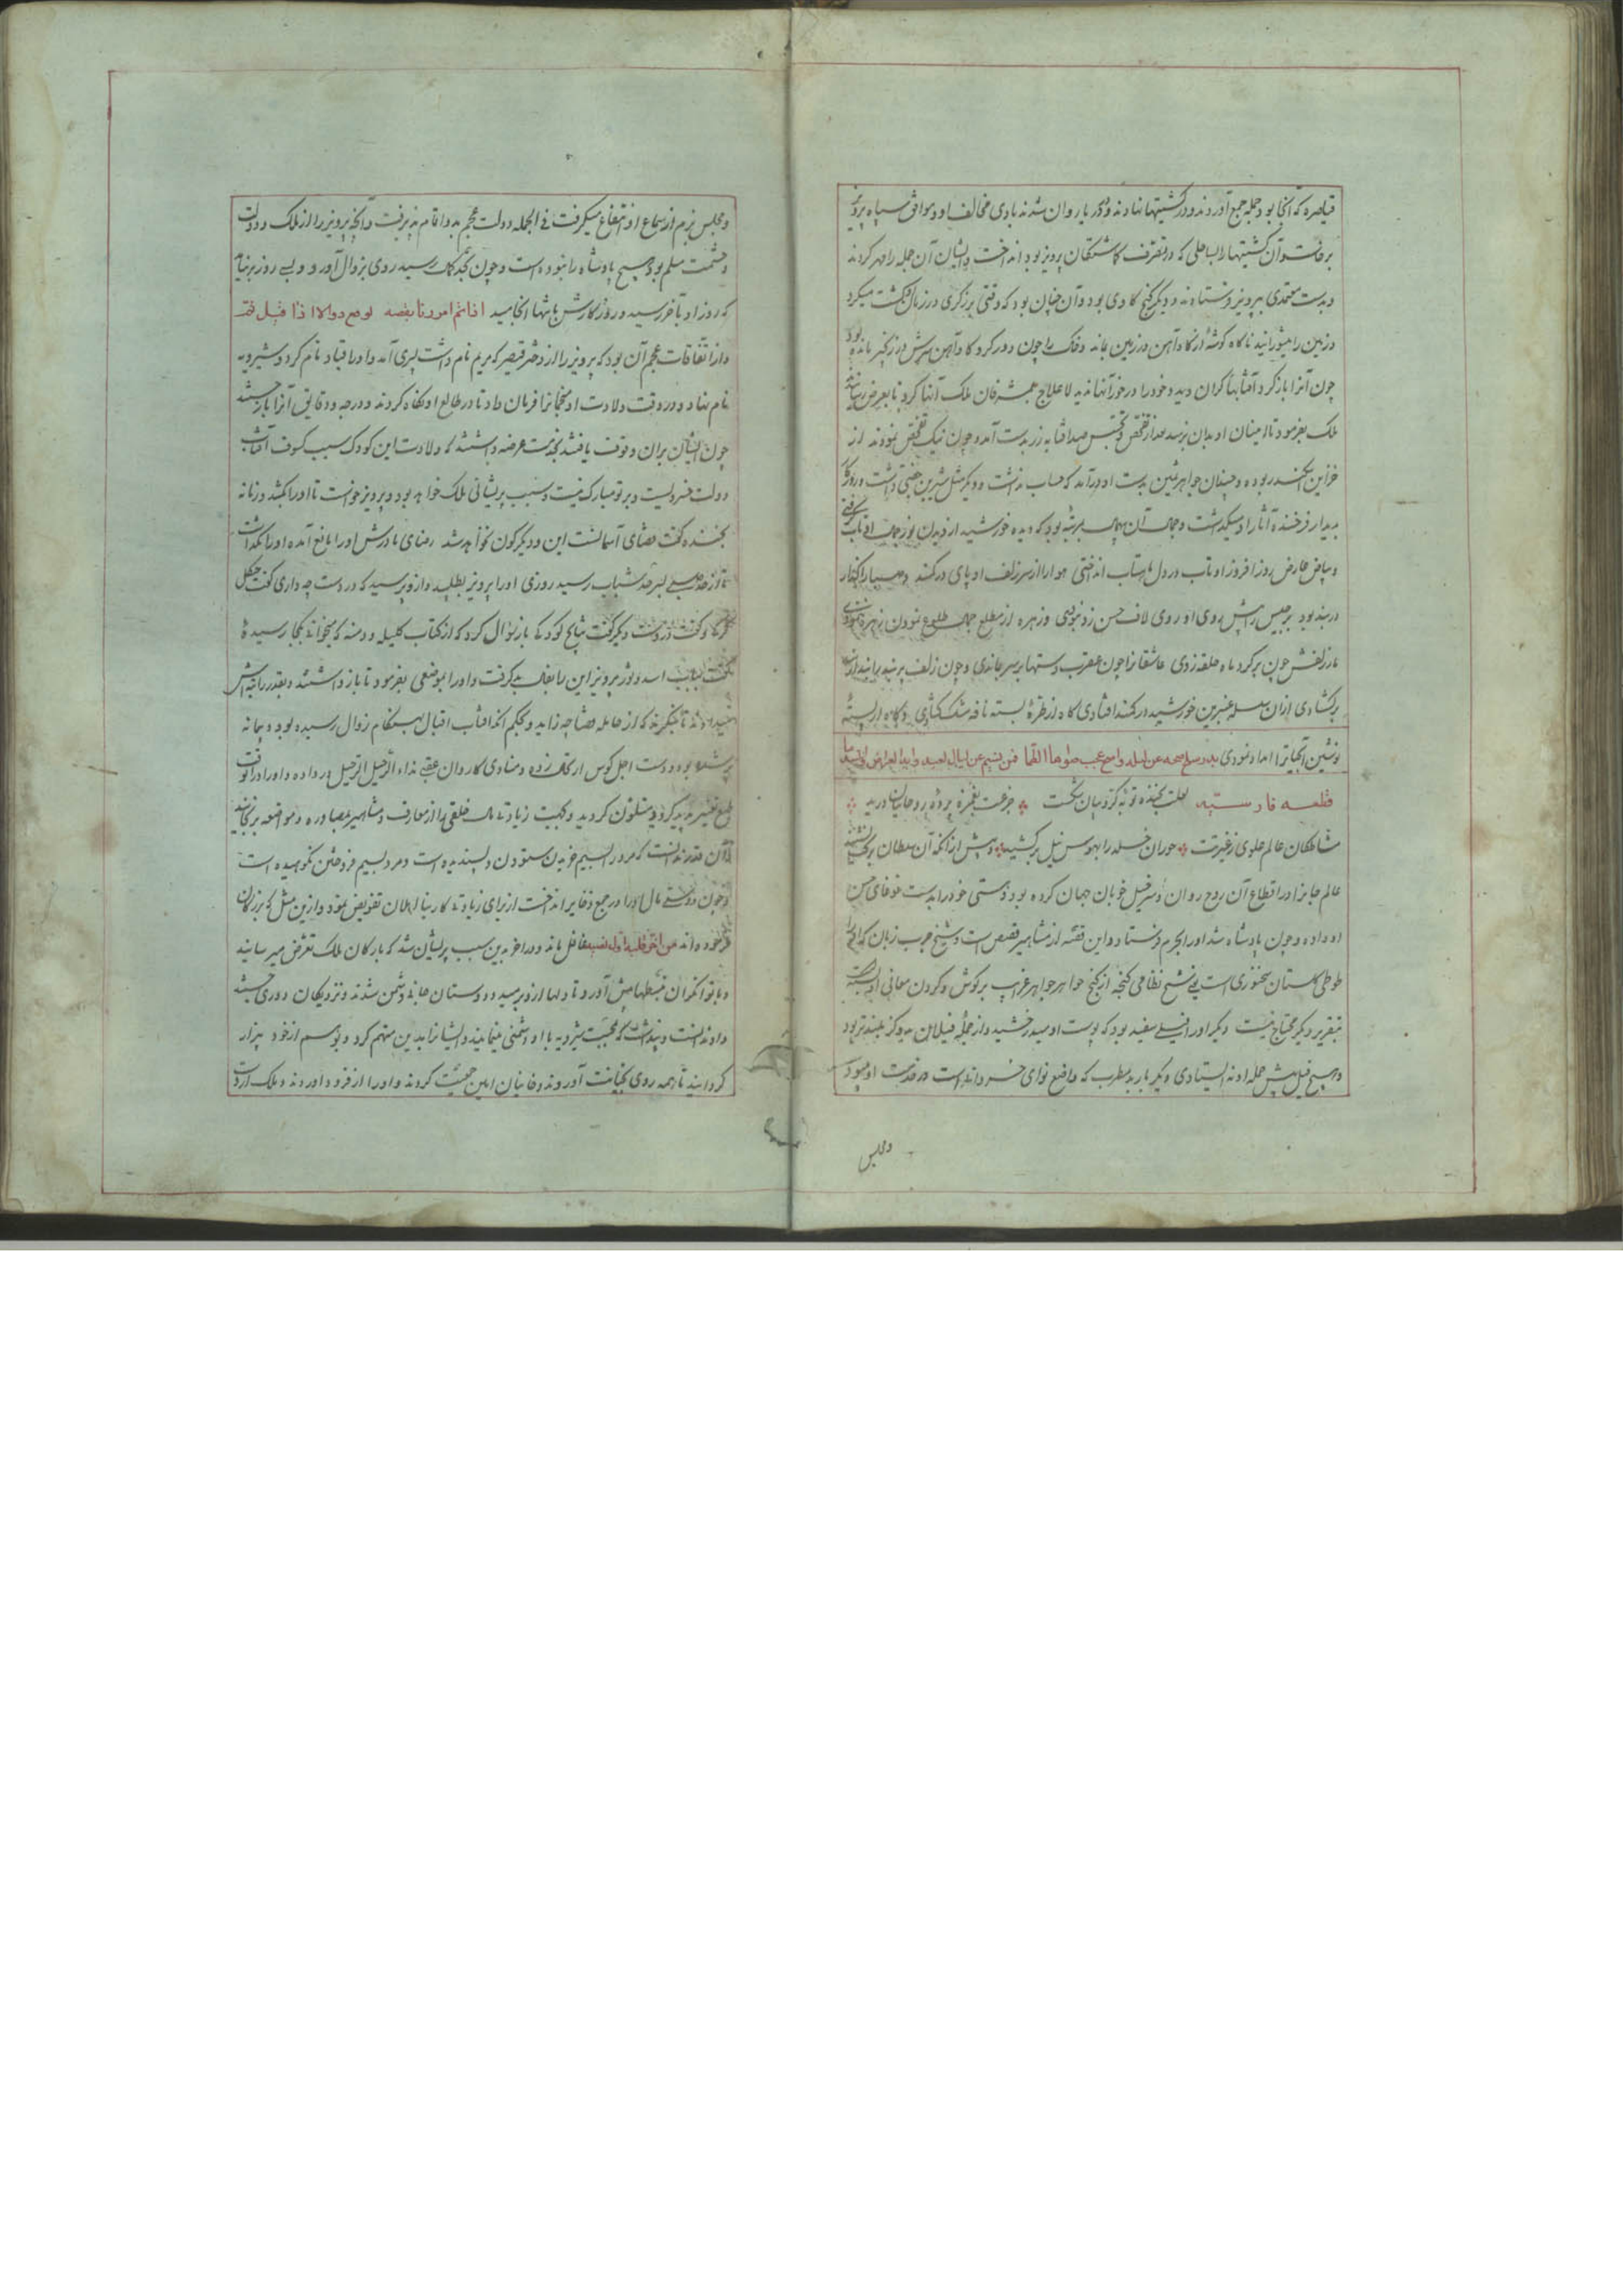 قیاصره که آنجا بود جمله جمع آوردند و در کشتیها نهادند و در دریا روان شدند بادی مخالف او و موافق سپاه پرویز
برخاست و آن کشتیها را بساحلی که در تصرف کماشتکان پرویز بود انداخت و ایشان آن جمله را مهر کردند
و بدست معتمدی بپرویز فرستادند و دیگر گنج کاوی بود و آن چنان بود که وقتی برزگری در زمان کشت میکرد
و زمین را میشورانید ناکاه گوشه از کاوآهن در زمین بماند و خاک را چون دور کرد کاوآهن سرش در زنجیر مانده بود
چون آنرا باز کرد آفتابها گران دید و خود را در خور آنها ندید لاعلاج مشرفان ملک آنها کرد تا بعرض رسانند
ملک بفرمود تا امینان او بدان برسند بعد از تفحص و تجسس صد آفتابه زر بدست آمد و چون نیک تفحص نمودند از
خزاین اسکندر بوده و چندان جواهر ثمین بدست او درآمد که حساب نداشت و دیگر مثل شیرین جفتی داشت و روزگار
بدیدار فرخنده آثار او میگذشت و جمال آن بمرتبه بود که دیده خورشید از دیدن نور جمال او تاب
و بیاض عارض روز افروز او تاب در دل ماهتاب انداختی هوا را از سر زلف او پای در کمند و
در بند بود برجیس پیش روی او روی لاف حسن زدنبودی و زهره از مطلع جمال طلوع نمودن زهره نبودی
مار زلفش چون بر گرد ماه حلقه زدی عاشقانرا چون عقرب دستها بر سر بماندی و چون زلف پر بند
بر کشادی از آن سلسله عنبرین خورشید در کمند افتادی کاه از طره بسته نافه مشک کشادی و کاه از پسته
نوشین امداد نمودی
قطعه فارسیه لعلت بخنده توبه کروبیان شکست جزعت بغمزه پرده روحانیان درید
مشاطکان عالم علوی ز غیرت حوران خلد را بهوس نیل بر کشید و پیش از آنکه آن سلطان
عالم جانرا در اقطاع آن روح روان و سرخیل خوبان جهان کرده بود و مستی خود را بدست غوغای حسن
او داده و چون پادشاه شد او را بحرم فرستاد و این قصه از مشاهیر قصص است و شیخ چرب زبان
طوطی کلستان سخنوری است یعنی شیخ نظامی گنجه از گنج خواهر جواهر غرایب بر گوش و گردن معانی او بسته
بتقریر دیگر محتاج نیست و دیگر او را فیلی سفید بود که پوست او میدرخشید و از جمله فیلان بدو گز بلندتر بود
و هیچ فیل پیش حمله او نه ایستادی و دیگر باربد مطرب که واضع نوای خسروانه است در خدمت او میبود
ومجلس
و مجلس بزم از سماع او انتفاع میگرفت فی الجمله دولت عجم بدو اتمام پذیرفت و آنچه پرویز را از ملک و دولت
و حشمت مسلم بود هیچ پادشاه را نبوده است و چون بحد کمال رسید روی بزوال آورد و بسی روز برنیامد
که روز او بآخر رسید و روزگارش بانتها انجامید اذا تم امر دنا نقصه توقع زوالا اذا قیل تم
و از اتفاقات عجم آن بود که پرویز را از دختر قیصر که مریم نام داشت پسری آمد و او را قباد نام کرد و شیرویه
نام نهاد و در وقت ولادت او منجمانرا فرمان داد تا در طالع او نگاه کردند و درجه و دقایق آنرا باز جستند
چون ایشان بران وقوف یافتند بخدمت عرضه داشتند که ولادت این کودک سبب کسوف آفتاب
دولت خسرویست و بر تو مبارک نیست و سبب پریشانی ملک خواهد بود و پرویز خواست تا او را بکشد و زمانه
بخنده گفت قضای آسمانست این و دیگرگون نخواهد شد رضای مادرش او را مانع آمده او را نگذاشت
تا از حد صبی بسر حد شباب رسید روزی او را پرویز بطلبید و ازو پرسید که در دست چه داری گفت چنگل
گرگ و گفت در دست دیگر گفت شاخ باز سؤال کرد که از کتاب کلیله و دمنه که میخوانی بکجا رسیده
گفت بباب اسد و ثور پرویز این را بفال بد گرفت و او را بموضعی بفرمود تا باز داشتند و بقدر
تا بنگرند که از حامله قضا چه زاید و بحکم آنکه آفتاب اقبال بهنگام زوال رسیده بود و پیمانه
پر شده بود و دست اجل کوس ارتحال زده و منادی کاروان عقبی نداء الرحیل الرحیل در داده و او را در آنوقت
طبع تغییر پدید کرد و متلون گردید و بجهت زیادتی مال خلقی را از معارف و مشاهیر مصادره و مواضعه برنجانید
و آن قدر ندانست که مرد را بسیم خریدن ستوده و پسندیده است و مرد بسیم فروختن نکوهیده است
و چون دوستی مال او را در جمع ذخایر انداخت از برای زیادتی کار بنااهلان تفویض نمود و ازین مثل که بزرگان
فرموده اند غافل ماند و در آخر بدین سبب پریشان شد که بارکان ملک تعرض میرسانید
و با توانگران پیش آورد تا دلها ازو برمید و دوستان جانی دشمن شدند و نزدیکان دوری جستند
و او ندانست و پنداشت که بمحبت شیرویه با او دشمنی مینمایند و ایشانرا بدین متهم کرد و بوسم از خود بیزار
گردانید تا همه روی بخیانت آوردند و خانیان این جمعیت کردند و او را از فرود آوردند و ملک از دست